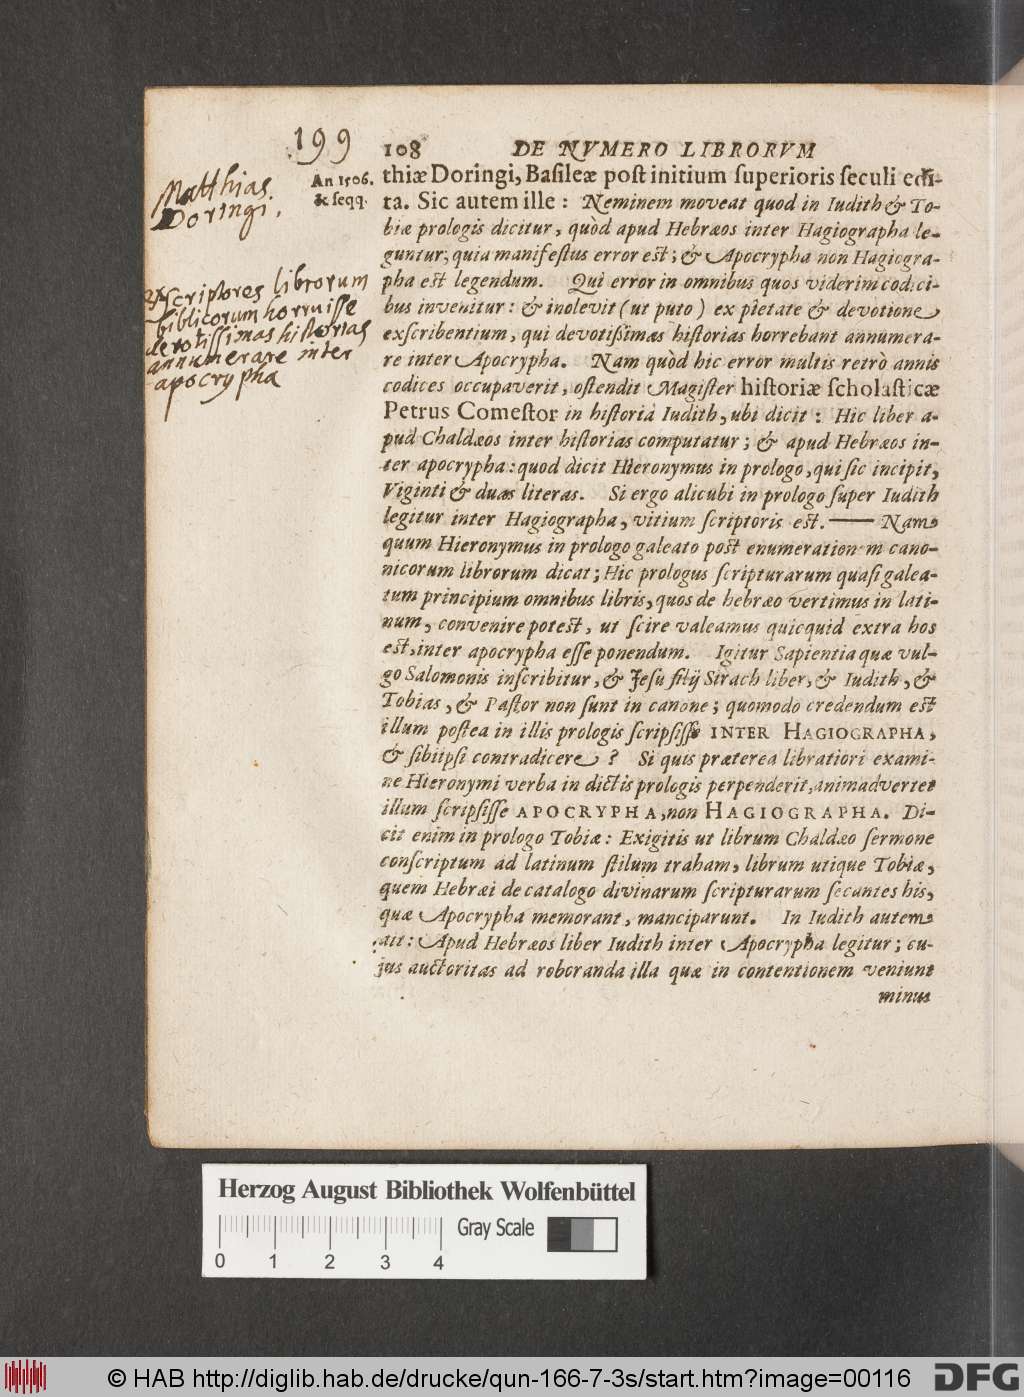 199
108 DE NVMERO LIBRORVM
Matthias
Doringi.
An 1506.
& seqq.
Exscriptores librorum
biblicorum horruisse
devotissimas historias
annumerare inter
apocrypha
thiæ Doringi, Basileæ post initium superioris seculi edi-
ta. Sic autem ille: Neminem moveat quod in Iudith & To-
biæ prologis dicitur, quòd apud Hebræos inter Hagiographa le-
guntur; quia manifestus error est; & Apocrypha non Hagiogra-
pha est legendum. Qui error in omnibus quos viderim codici-
bus invenitur: & inolevit (ut puto) ex pietate & devotione
exscribentium, qui devotißimas historias horrebant annumera-
re inter Apocrypha. Nam quòd hic error multis retrò annis
codices occupaverit, ostendit Magister historiæ scholasticæ
Petrus Comestor in historia Iudith, ubi dicit: Hic liber a-
pud Chaldæos inter historias computatur; & apud Hebræos in-
ter apocrypha: quod dicit Hieronymus in prologo, qui sic incipit,
Viginti & duas literas. Si ergo alicubi in prologo super Iudith
legitur inter Hagiographa, vitium scriptoris est. — Nam
quum Hieronymus in prologo galeato post enumerationem cano-
nicorum librorum dicat; Hic prologus scripturarum quasi galea-
tum principium omnibus libris, quos de hebræo vertimus in lati-
num, convenire potest, ut scire valeamus quicquid extra hos
est, inter apocrypha esse ponendum. Igitur Sapientia quæ vul-
go Salomonis inscribitur, & Jesu filij Sirach liber, & Iudith, &
Tobias, & Pastor non sunt in canone; quomodo credendum est
illum postea in illis prologis scripsisse INTER HAGIOGRAPHA,
& sibiipsi contradicere? Si quis præterea libratiori exami-
ne Hieronymi verba in dictis prologis perpenderit, animadvertet
illum scripsisse APOCRYPHA, non HAGIOGRAPHA. Di-
cit enim in prologo Tobiæ: Exigitis ut librum Chaldæo sermone
conscriptum ad latinum stilum traham, librum utique Tobiæ,
quem Hebræi de catalogo divinarum scripturarum secantes his,
quæ Apocrypha memorant, manciparunt. In Iudith autem
ait: Apud Hebræos liber Iudith inter Apocrypha legitur; cu-
jus auctoritas ad roboranda illa quæ in contentionem veniunt
minus
Herzog August Bibliothek Wolfenbüttel
Gray Scale
0 1 2 3 4
© HAB http://diglib.hab.de/drucke/qun-166-7-3s/start.htm?image=00116
DFG